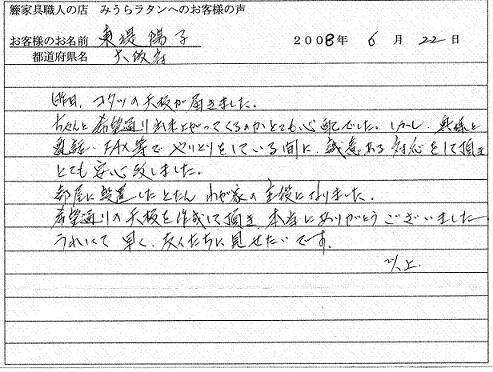 籐家具職人の店 みうらラタンへのお客様の声
お客様のお名前 東堤 陽子 2008年 6月 22日
都道府県名 大阪府
昨日、コタツの天板が届きました。
ちゃんと希望通り出来上がってくるのかとても心配でした。しかし、奥様と
電話・FAX等でやりとりをしている間に、誠意ある対応をして頂き
とても安心致しました。
部屋に設置したとたん わが家の主役になりました。
希望通りの天板を作成して頂き、本当にありがとうございました
うれしくて 早く、友人たちに見せたいです。
以上